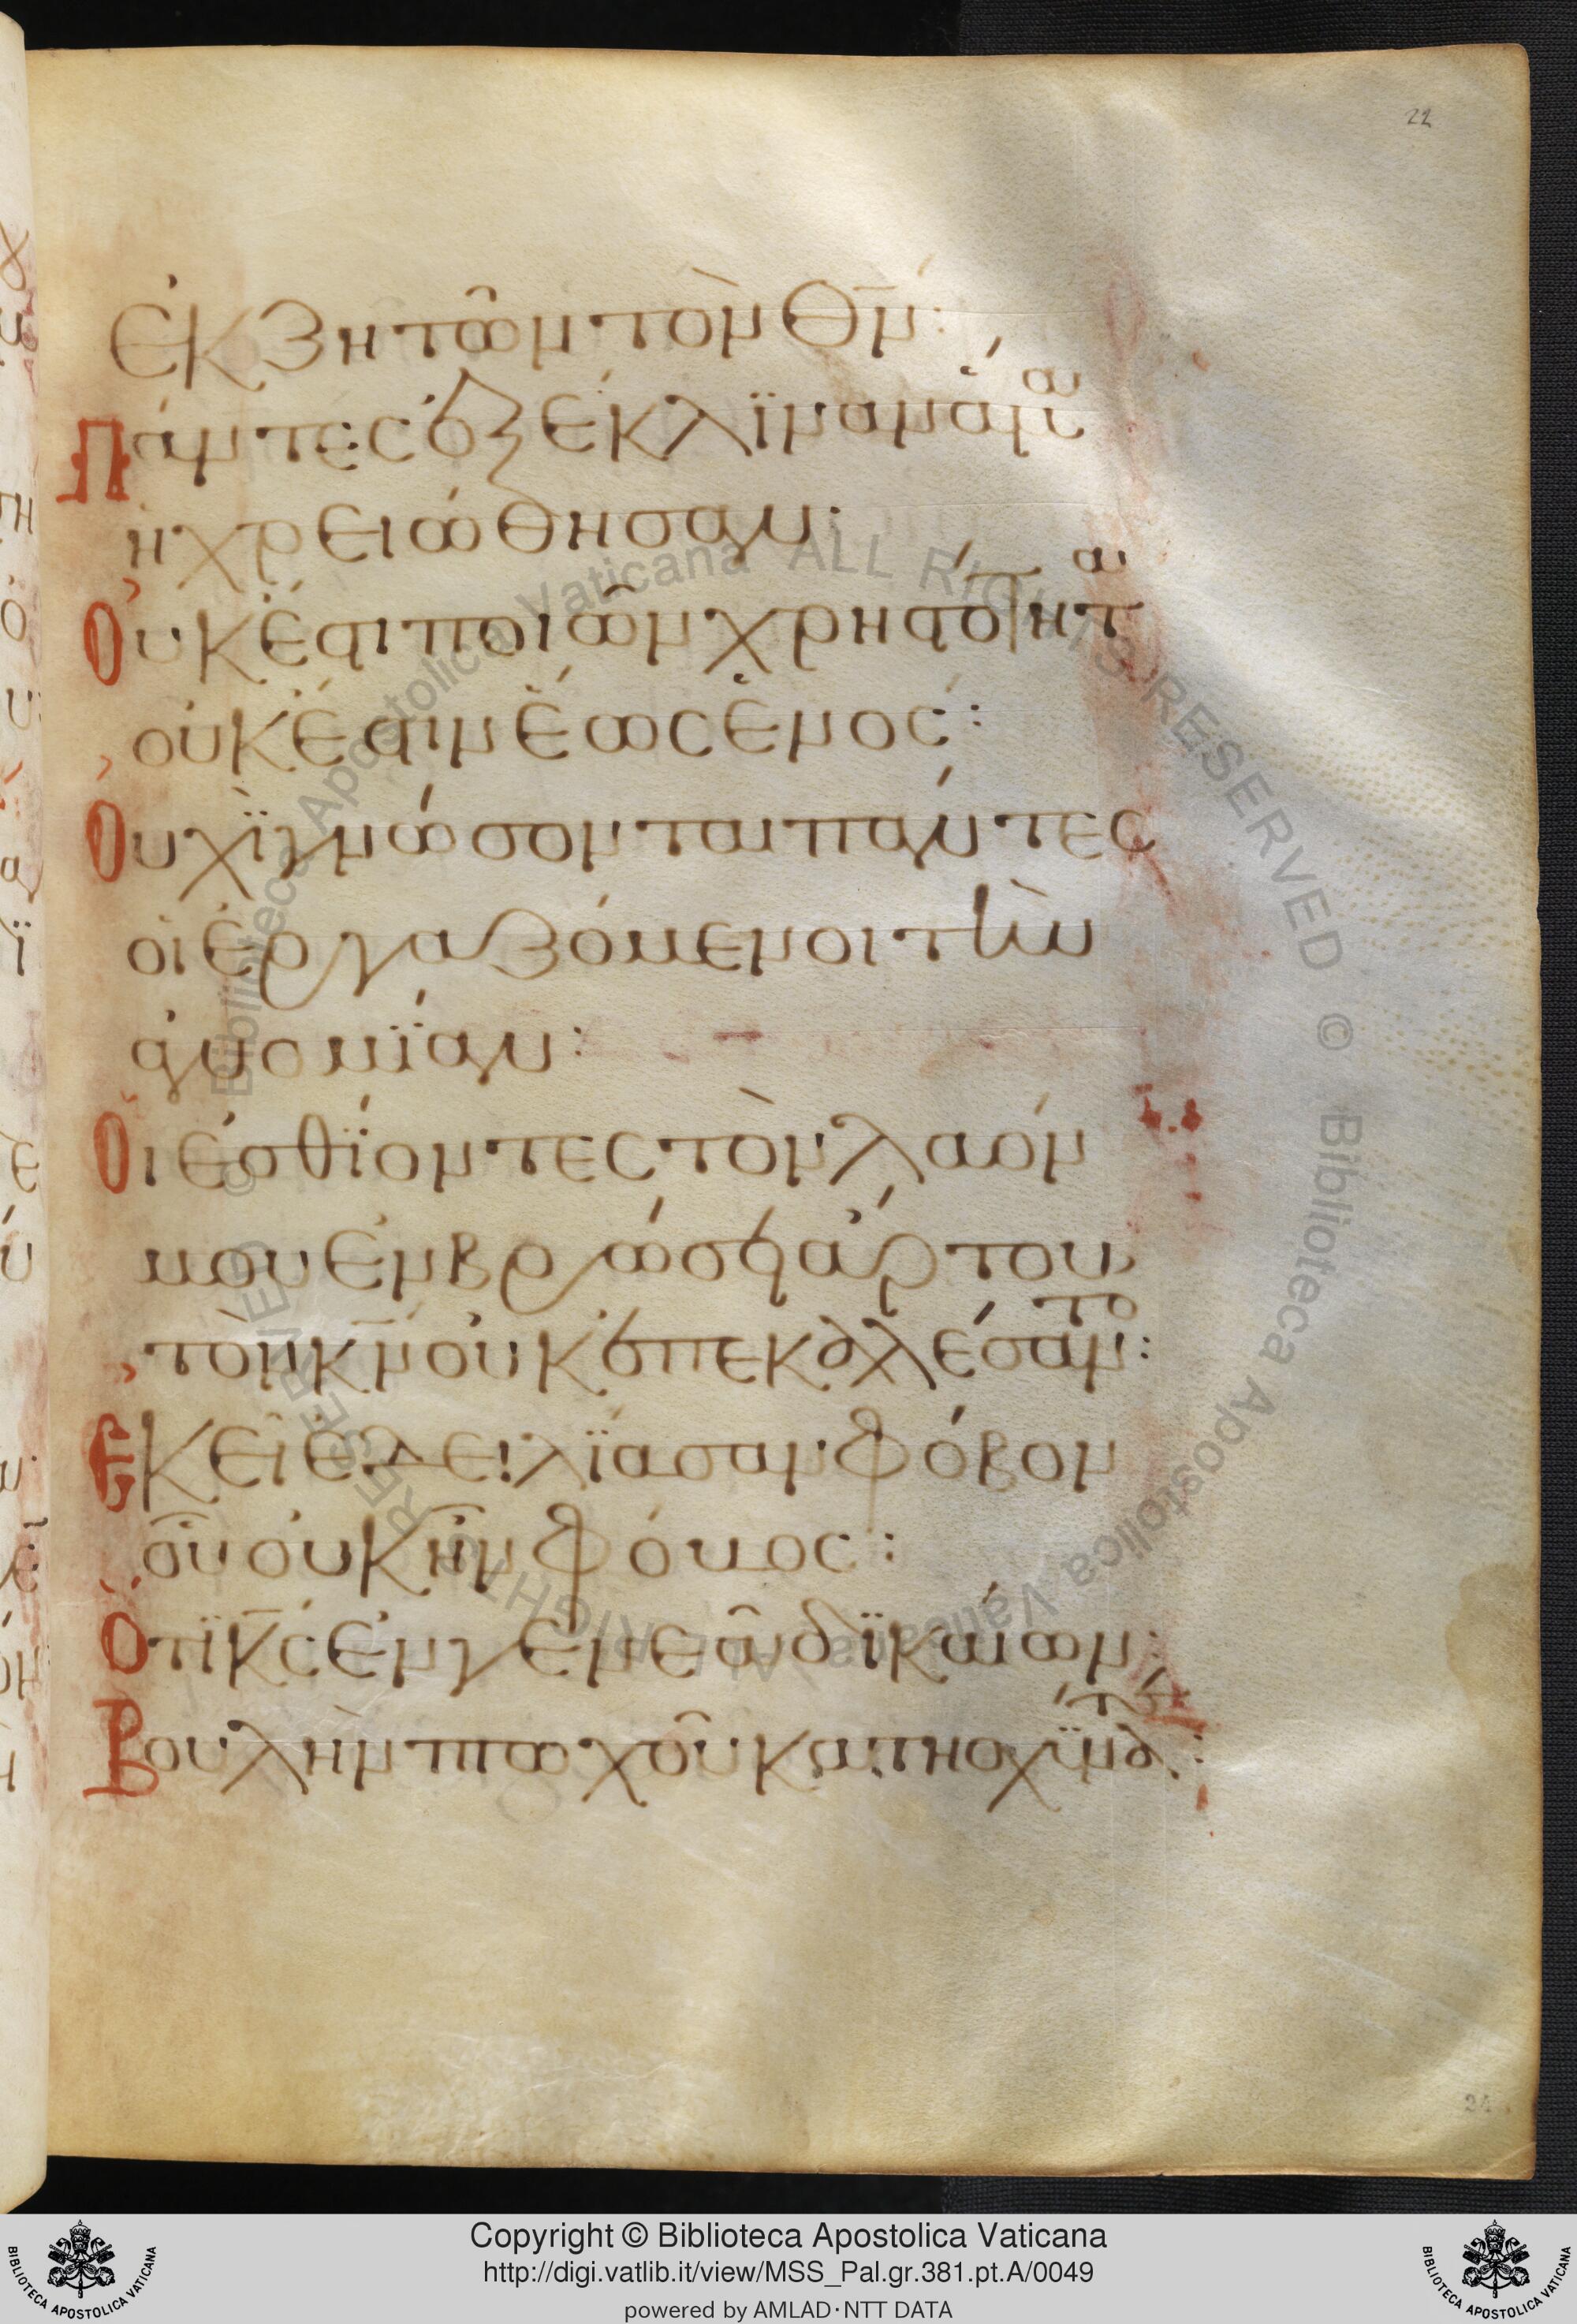 22
ἐκζητῶν τὸν θν̄:
Πάντες ἐξέκλϊναν ἅμα
ἠχρειώθησαν·
Οὐκ ἔστι ποιῶν χρηστότητα
οὐκ ἔστιν ἕως ἑνός:
Οὐχῒ γνώσονται πάντες
οἱ ἐργαζόμενοι τὴν
ἀνομΐαν:
Οἱ ἐσθΐοντες τὸν λαόν
μου ἐν βρώσει ἄρτου,
τὸν κν̄ οὐκ ἐπεκαλέσαντο:
Ἐκεῖ ἐδειλΐασαν φόβον
οὗ οὐκ ἦν φόβος:
Ὅτϊ κς̄ ἐν γενεᾶ δϊκαίων:
Βουλὴν πτωχοῦ κατησχΰνατε:
24
Biblioteca Apostolica Vaticana ALL RIGHTS RESERVED © Biblioteca Apostolica Vaticana ALL RIGHTS RESERVED ©
Copyright © Biblioteca Apostolica Vaticana
http://digi.vatlib.it/view/MSS_Pal.gr.381.pt.A/0049
powered by AMLAD·NTT DATA
BIBLIOTECA APOSTOLICA VATICANA
BIBLIOTECA APOSTOLICA VATICANA